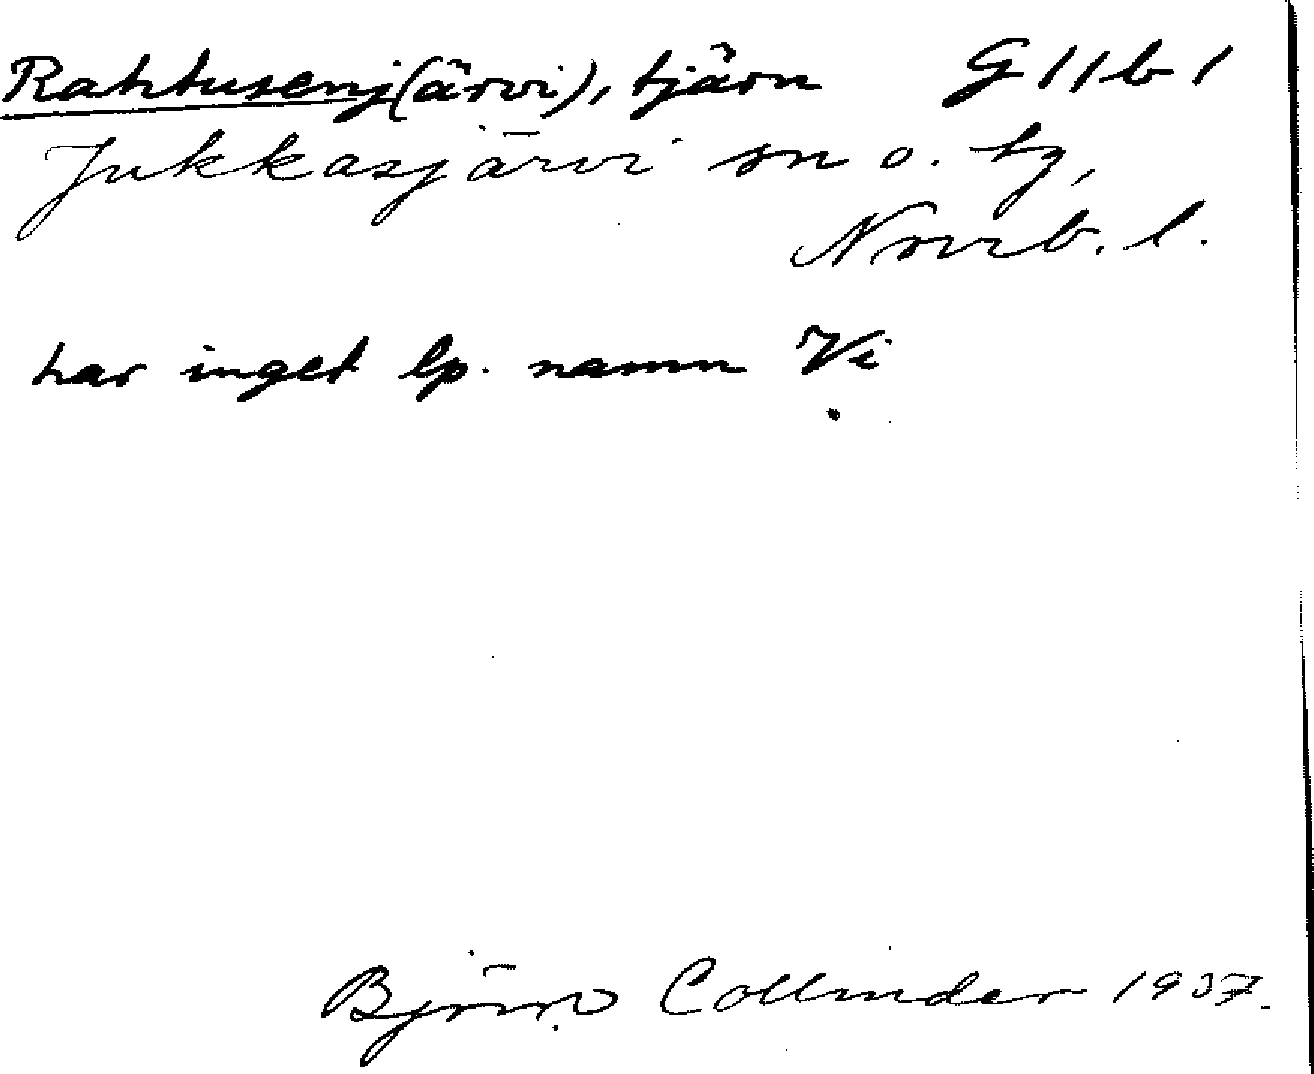 Rahtusenj(ärvi), tjärn G 11 b 1
Jukkasjärvi sn o. tg,
Norrb. l.
har inget lp. namn Vi
Björn Collinder 1937.